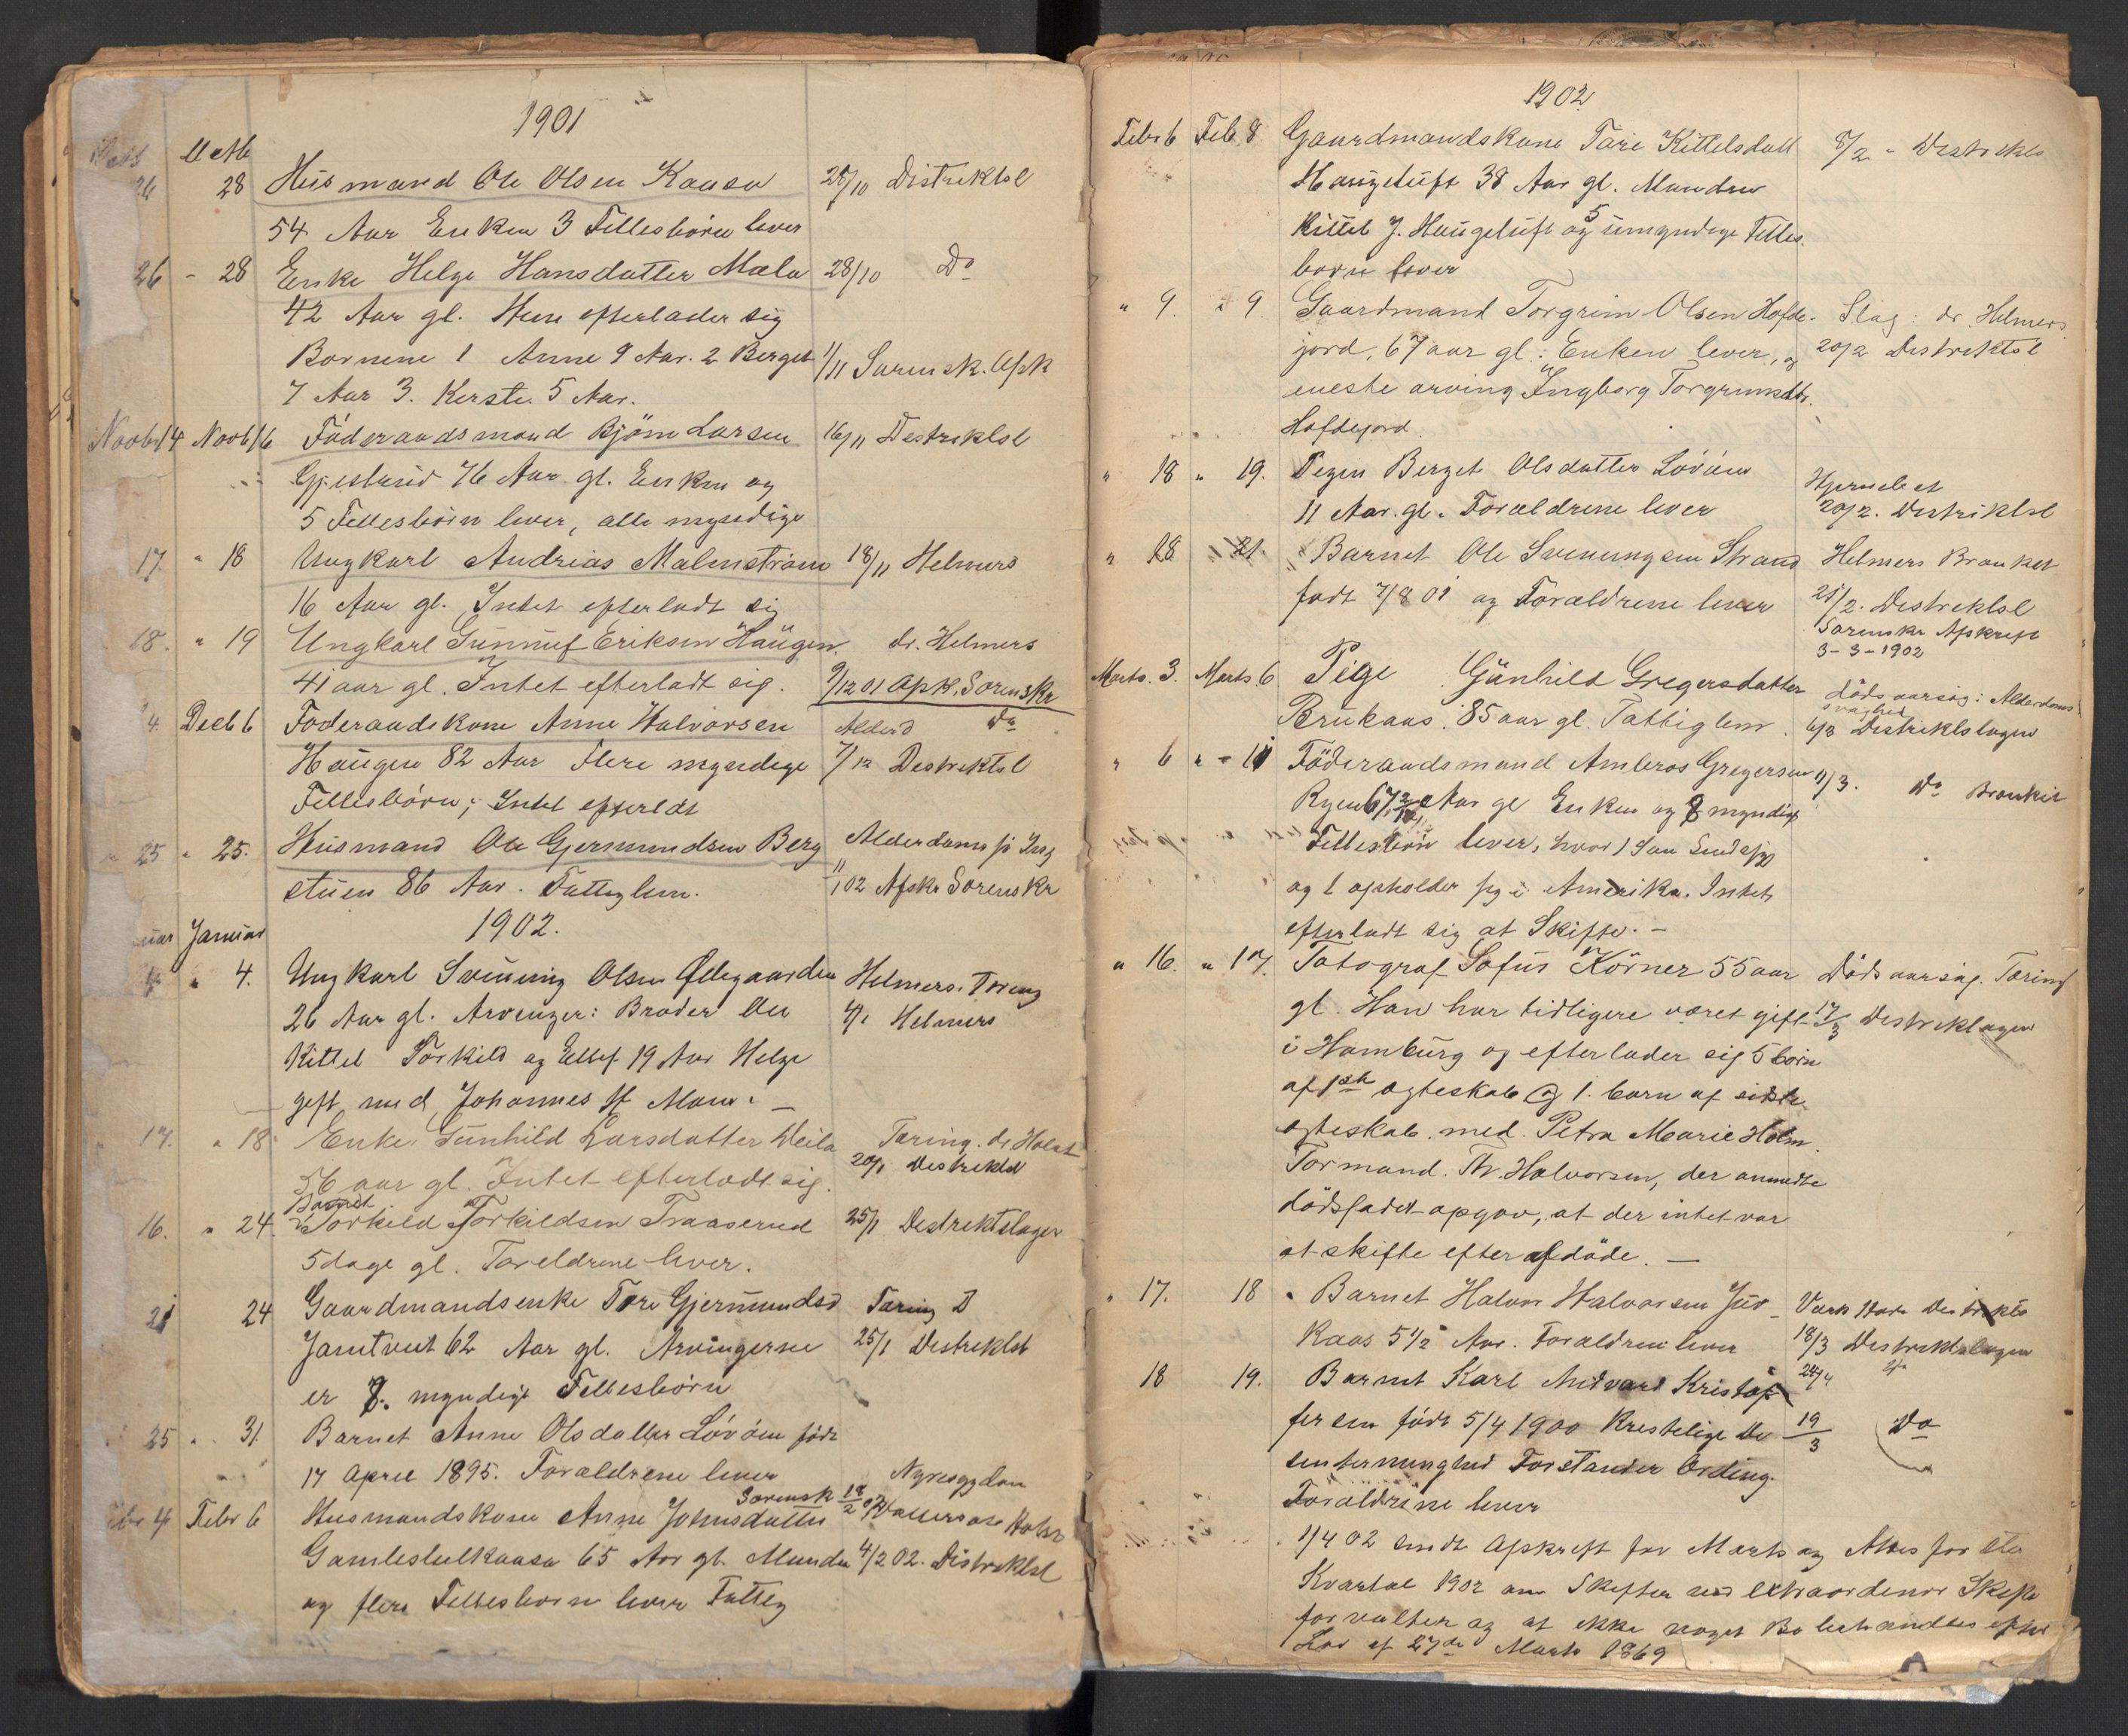 1901
Octb
26 28 Husmand Ole Olsen Kaasa 28/10 Distriktsl
54 Aar Enken 3 Fellesbörn lever
26 - 28 Enke Helge Hansdatter Mæla 28/10 Do
42 Aar gl. Hun efterlader sig
Bornene 1 Anne 9 Aar. 2 Berget 1/11 Sorensk. Afsk
7 Aar 3. Kerste. 5 Aar.
Novbr 14 Novb 16 Föderaadsmand Björn Larsen 16/11 Destriktsl
76 Aar gl. Enken og
5 Fellesbörn lever, alle myndige
17. " 18 Ungkarl Andreas Malmström 18/11 Helmers
16 Aar gl. Intet efterladt sig
18. " 19 Ungkarl Gunnuf Eriksen Haugen. dr. Helmers
41 aar gl. Intet efterladt sig. 9/12 01 Apk. Sorenskr
4. Decb 6 Föderaadskone Anne Halvorsen Do
Haugen 82 Aar Flere myndige 7/12 Destriktsl
Fellesbörn; Intet efterladt
" 25 " 25. Husmand Ole Gjermundsen Berg Alderdoms
stuen 86 Aar. Fattiglem. 11/1 02 Afskr Sorenskr
1902.
Januar
4 " 4. Ungkarl Svenning Olsen Ødegaarden Helmers. Tæring
26 Aar gl. Arvinger: Broder Ole 4/1 Helmers
Kittel Torkild og Ellef 19 Aar Helge
gift med Johannes H Moen. —
17. " 18 Enke Gunhild Larsdatter Tæring. dr Holst
56 aar gl. Intet efterladt sig. 20/1 Destriktsl
Barnet
16. " 24. Torkild Torkildsen Traaserud 25/1 Destriktslagen
5 dage gl. Foreldrene lever.
21 24 Gaardmandsenke Tore Gjermundsd Tæring D
Jamtveit 62 Aar gl. Arvingerne 25/1 Destriktsl
er 8. myndige Fellesbörn
25 " 31. Barnet Anne Olsdatter Lövåen födt
17 April 1895. Foraldrene lever Nyresygdom
Febr 4 Febr 6 Husmandskone Anne Johnsdatter Sorensk 18/2 02
65 Aar gl. Manden 4/2 02. Distriktsl
og flere Fellesborn lever Fattig
1902
Febr 6 Feb 8 Gaardmandskone Tore Kittelsdatt 8/2 - Destrikts
Haugetuft 38 Aar gl. Manden
Kittel J. Haugetuft og 5 umyndige Felles.
born lever
" 9. " 9. Gaardmand Torgrim Olsen Hofde- Slag: dr. Helmers
jord, 67 aar gl: Enken lever, og 20/2 Destriktsl
eneste arving Ingborg Torgrimsdtr.
Hofdejord.
" 18 " 19. Pegen Berget Olsdatter Lövåen Hjernebet
11 Aar. gl. Foraldrene lever 20/2. Destriktsl
" 18 " 21. Barnet Ole Svenungsen Strand Helmers Bronket
fodt 7/8 01 og Foraldrene lever 21/2. Destriktsl
Sorenskr Afskreft
3-3-1902
Marts. 3. Marts. 6 Pige Günhild Gregersdatter dödsaarsag: Alderdoms
svaghed
Brukaas. 85 aar gl. Fattiglem. 6/3 Destriktslagen
" 6 " - 11 Föderaadsmand Ambros Gregersen 11/3. Do Bronkit
Ryen 67 Aar gl Enken og 8 myndige
Fellesbörn lever, hvor 1 Søn
og 1 opholder sig i Amerika. Intet
efterladt sig at Skifte. -
" 16. " 17. Fotograf Sofus Körner 55 aar Dödsaarsag. Tæring
gl. Han har tidligere været gift 17/3 Destriktlagen
i Hamburg og efterlader sig 5 börn
af 1ste ægteskab og 1. barn af sidste
ægteskab. med. Petra Marie Holm.
Formand. Th. Halvorsen, der anmeldte
dödsfadet opgav, at der intet var
at skifte efter afdöde. —
" 17. 18 " Barnet Halvor Halvorsen Juv-
kaas 5 1/2 Aar. Foraldrene lever 18/3 Destriktslagen
18 19. Barnet Karl Andvard Kristof-
fersen födt 5/4 1900 Krestelige De 19/3 Do
sintermenghed Forstander Ording.
Foraldrene lever
1/4 02 sendt Afskreft for Marts og Attes for 1ste
Kvartal 1902 om Skefter ved extraordenær Skefte
forvalter og at ikke noget Bo behandles efter
Lov af 27de Marts 1869